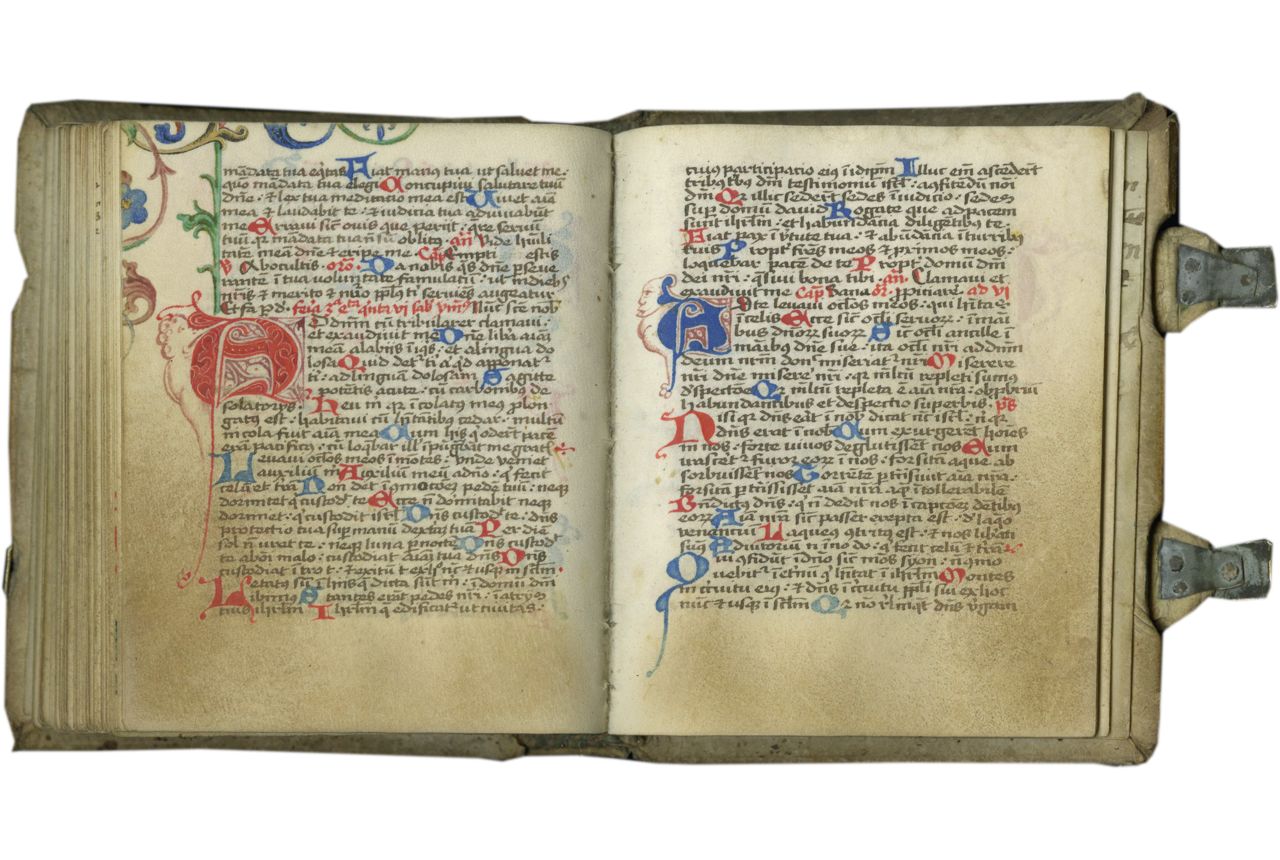 mādata tua eq̄tas Fiat manꝰ tua ut saluet me·
quo mādata tua elegi Concupiui salutare tuū
dn̄e· & lex tua meditatio mea est Viuet aīa
mea & laudabit te· & iudicia tua adiuuabūt
me Erraui sic̄ ouis que perijt· qre seruū
tuū qꝛ mādata tua nˉ sū oblitꝰ· an̄ Vide hūili
tatē meā dn̄e & eripe me Cap̄ Empti estis
V Ab occultis or̄o· Da nobis qs̄ dn̄e perseue
rante ī tua volūtate famulatū· ut ī dieb;
nr̄is & merito & nūo ppl̄us tˉ seruiēs augeatur
feria
AD dn̄m cū tribularer clamaui·
et exaudiuit me Dn̄e lib̄a aīam
meā alabijs īiqs· et alingua do
losa Quid det tˉ aut qd apponat᷑
tˉ· ad linguam dolosam Sagitte
potētis acute· cū carbonibus de
solatorijs· Heu m̄ qꝛ īcolatꝰ meus ꝓlon
gatꝰ est· habitaui cū hītātibus cedar· multū
incola fuit aīa mea Cum hijs qˉ oderūt pacē
erā pacificꝰ· cū loq̄bar ill̄ īpugbāt me gratˉ
Leuaui oclos meos ī mōtes· vnde veniet
auxiliū m̄ Auxiliū meū a dn̄o· qˉ fecit
celū et trā Non det ī moc̄oēz pedē tuū· neqꝫ
dormitet qˉ custodˉ te Ecce nˉ dormitabit neqꝫ
dormiet· qˉ custodit isrl̄ Dn̄s custodˉ te· dn̄s
protectio tua suꝑ manū dexterā tuā Per diē
sol nˉ vret te· neqꝫ luna ꝑ noctē Dn̄s custodˉ
te ab oī malo· custodiat aīam tuā dn̄s Dn̄s
custodiat ītroˉt· & exitū tˉ exhˉ nc̄ & vsqꝫ in sclm̄
Letatꝰ sū ī hijs q̄ dicta sūt m̄· ī domū dn̄i
ibimꝰ Stantes erāt pedes nr̄i· ī atrijs
tuis ihrl̄m Ihrl̄m q̄ edificat᷑ ut ciuitas·
cuius participatio eiꝰ ī idip̄m Illuc em̄ ascendēt
tribꝰ tribꝰ dn̄i testimoniū isrl̄· ad ꝯfitēdū noī
dn̄i Qꝛ illic sederūt sedes ī iudicio· sedes
suꝑ domū dauid Rogate que ad pacem
sunt ihrl̄m· et habundātia diligētibꝰ te·
Fiat pax ī v̄tute tua· & abūdācia ī turribꝰ
tuis Propt̄ fr̄es meos & ꝓximos meos·
loquebar pacē de te Propt̄ domū dn̄i
dei nr̄i· qˉsiui bona tibi· an̄ Clamaui et
exaudiuit me Cap̄ or̄
Ad te leuaui oclos meos· qui hītas
ī celis Ecce sic̄ ocl̄i seruorꝝ· ī manˉ
bus dn̄orꝝ suorꝝ Sic̄ ocl̄i ancille ī
manibꝰ dn̄e sue· ita ocl̄i nr̄i ad dn̄m
deum nr̄m donˉ miseriat᷑ nr̄i Miserere
nr̄i dn̄e miserē nr̄i· qꝛ mˡtū repleti sumꝰ
dˉspectoēe Qꝛ mˡtū repleta ē aīa nr̄a· obprobriū
habundantibus et despectio superbis· ps̄
Nisi qꝛ dn̄s erāt ī nobˉ dicat nc̄ isrl̄· nˉ qꝛ
dn̄s erat ī nob̄ Cum exurgerēt hoīes
in nos· forte viuos deglutissēt nos Cum
irascēt᷑ furor eorꝝ ī nos· forsitā aque ab
sorbuissēt nos Torrētē ꝑtrāsiuit aīa nr̄a·
forsitā ꝑtrāsisset aīa nr̄a aqꝫ ītollerabilē
Bn̄dictus dn̄s· qˉ nˉ dedit nos ī captoēz dētibus
eorꝝ Aīa nr̄a sic̄ passer erepta est· dˉ laqo
venantiū Laqueus ꝯtritꝰ est· & nos libˉati
sūꝰ Adiutoriū nr̄m ī noīe do· qˉ fecit celū & trā
Qui ꝯfidūt ī dn̄o sic̄ mōs syon· nˉ ꝯmo
uebit᷑ ī et̄nū qˉ hītat ī ihrl̄m Montes
ī circuitu eiꝰ· & dn̄s ī circuitu ppl̄i sui ex hoc
nūc & vsqꝫ ī sclm̄ Qꝛ nˉ relīqet dn̄s v̄gam